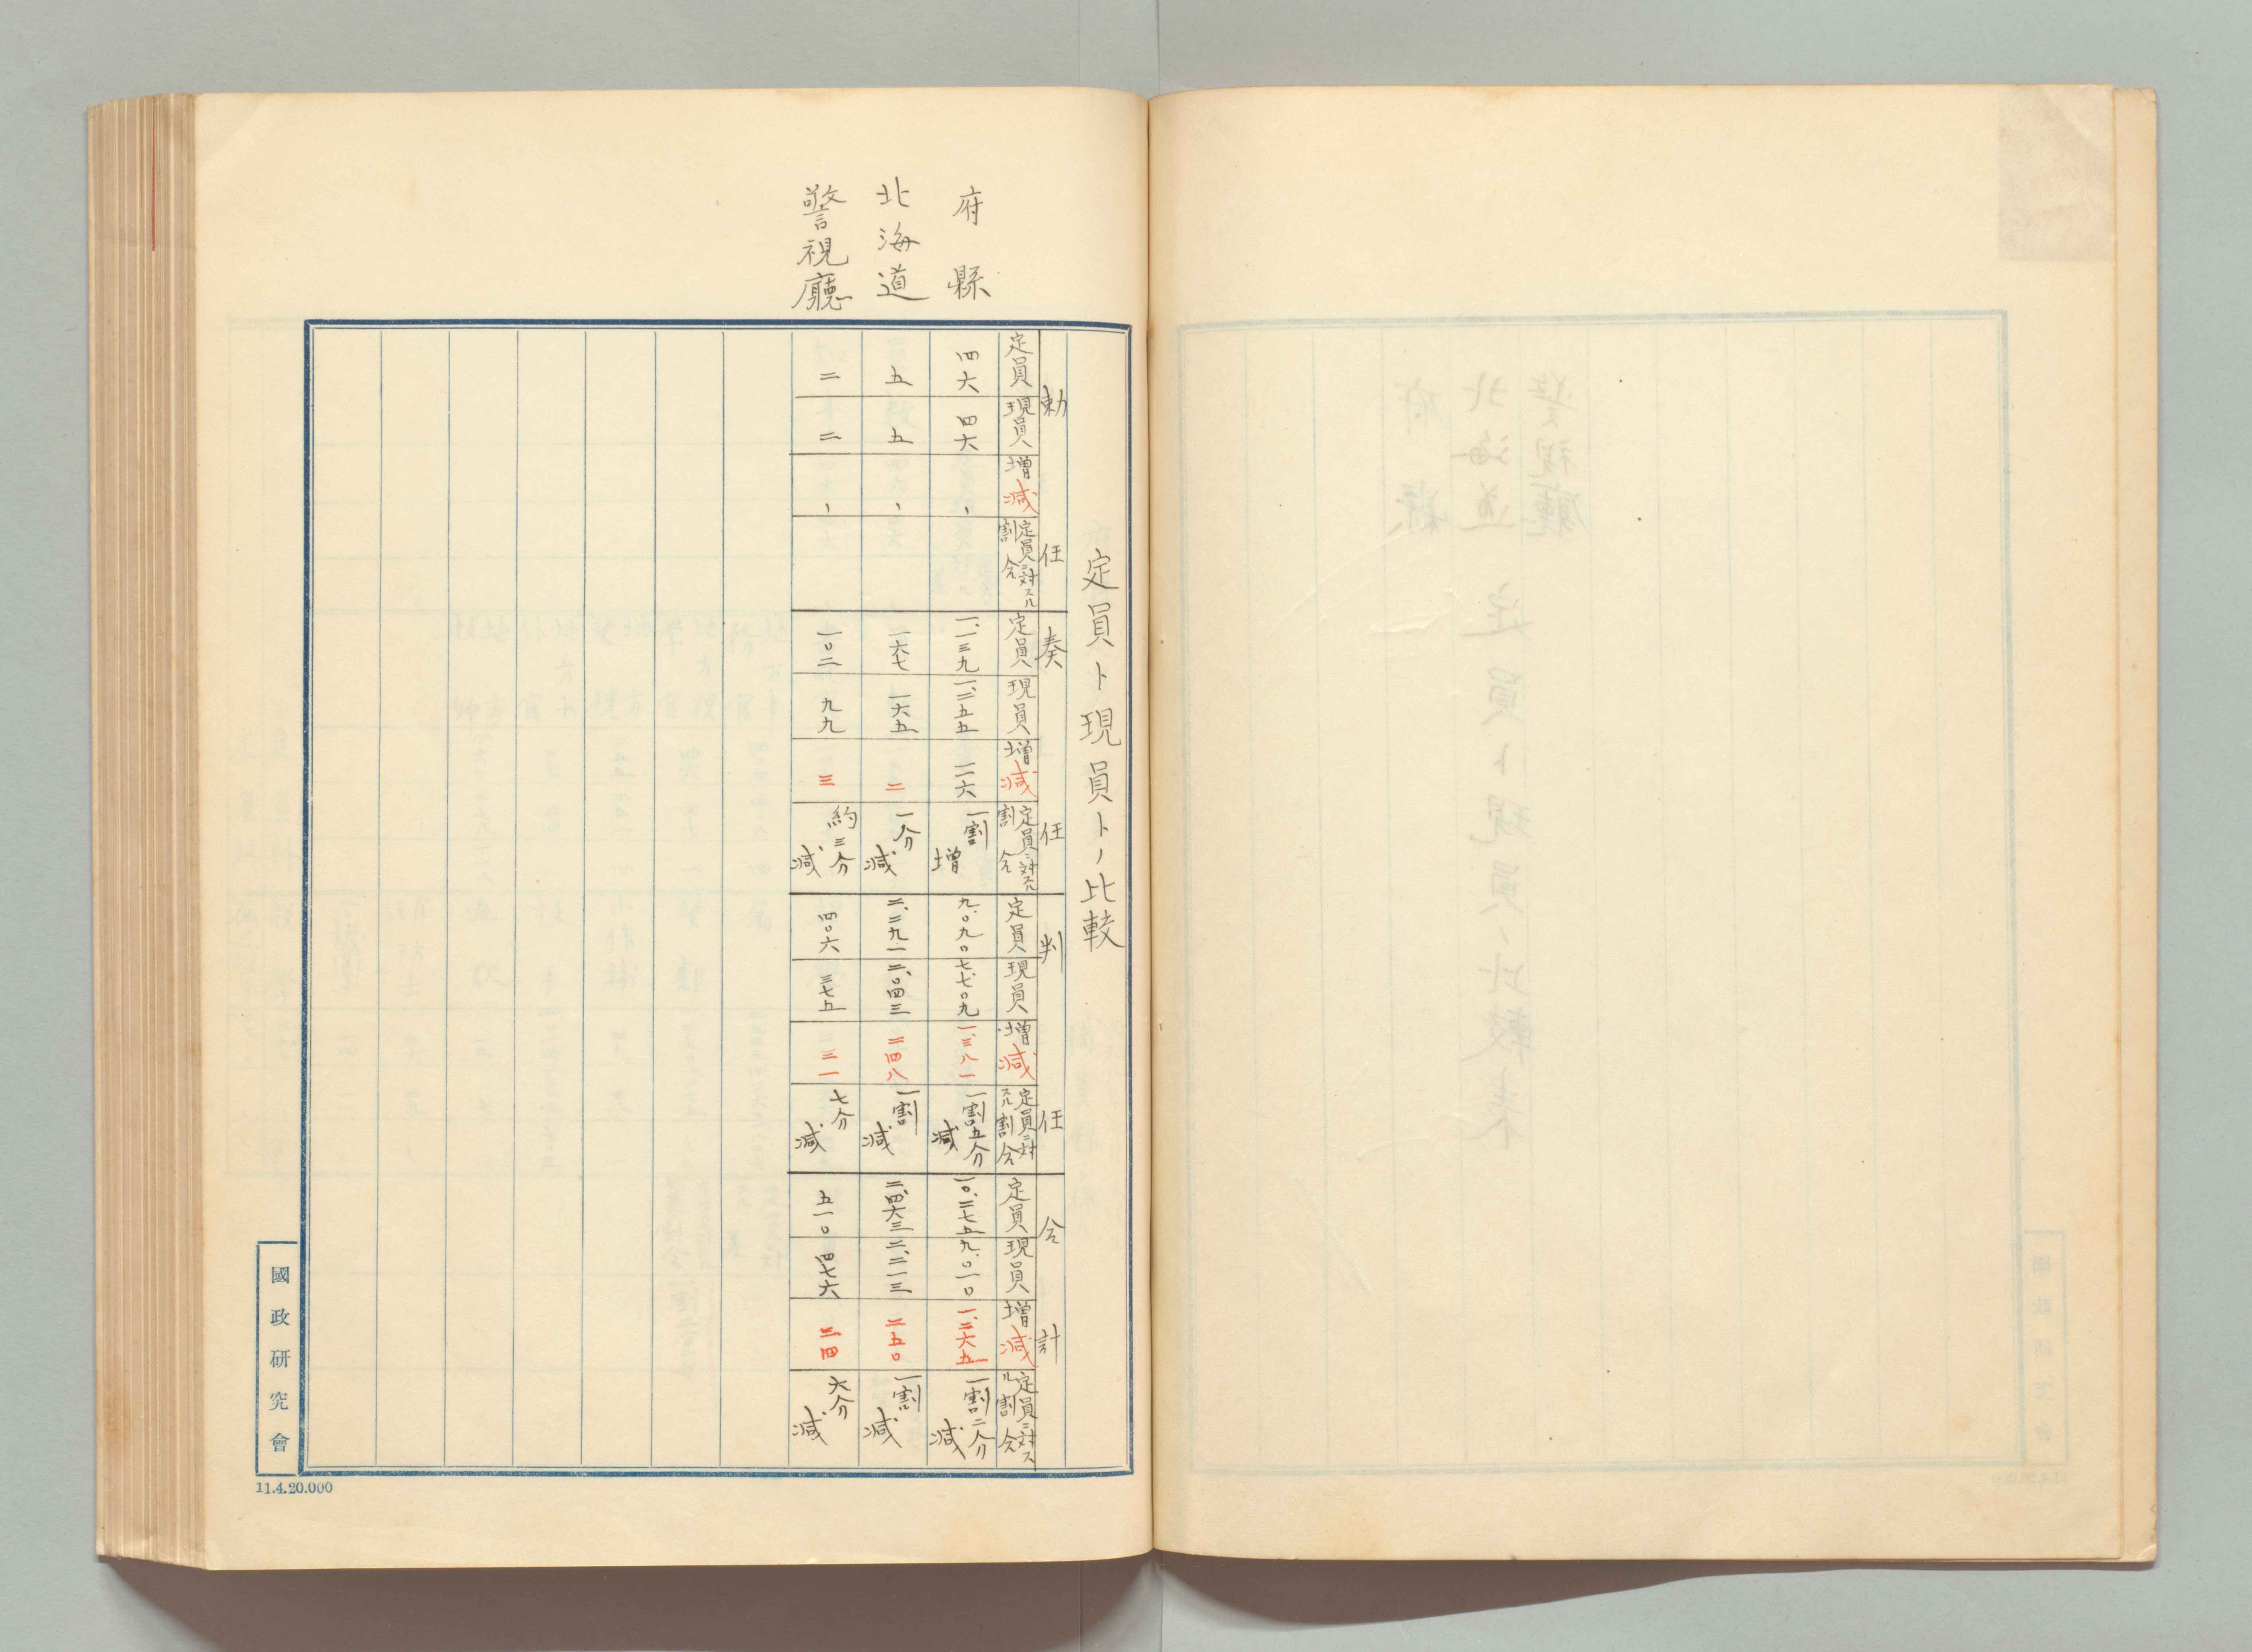 定員ト現員トノ比較
勅任 奏任 判任 合計
定員 現員 増減 定員ニ対スル割合 定員 現員 増減 定員ニ対スル割合 定員 現員 増減 定員ニ対スル割合 定員 現員 増減 定員ニ対スル割合
府縣 四六 四六 、 一、一三九 一、二五五 一一六 一割増 九、〇九〇 七、七〇九 一、三八一 一割五分減 一〇、二七五 九、〇一〇 一、二六五 一割二分減
北海道 五 五 、 一六七 一六五 二 一分減 二、二九一 二、〇四三 二四八 一割減 二、四六三 二、二一三 二五〇 一割減
警視廳 二 二 、 一〇二 九九 三 約三分減 四〇六 三七五 三一 七分減 五一〇 四七六 二四 六分減
國政研究會
11.4.20.000